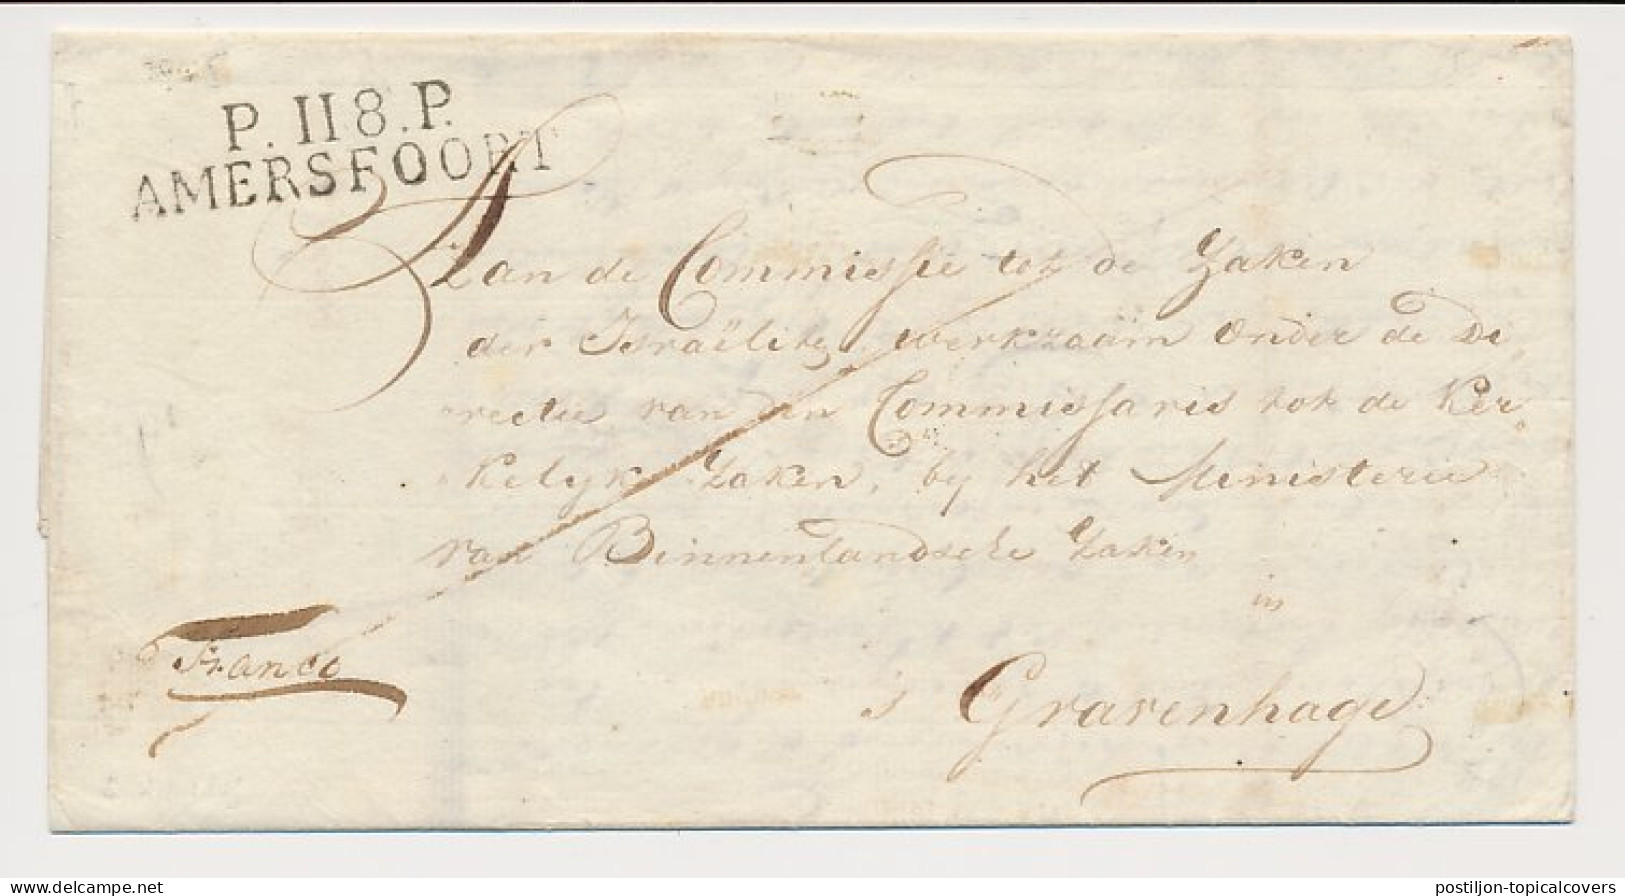 P. 118. P.
AMERSFOORT
Aan de Commissie tot de Zaken
der Israëlite, werkzaam onder de Di,,
rectie van den Commissaris tot de Ker,,
kelijke Zaken, bij het Ministerie
van Binnenlandsche Zaken
in
Franco
s Gravenhage
delcampe.net
postiljon-topicalcovers